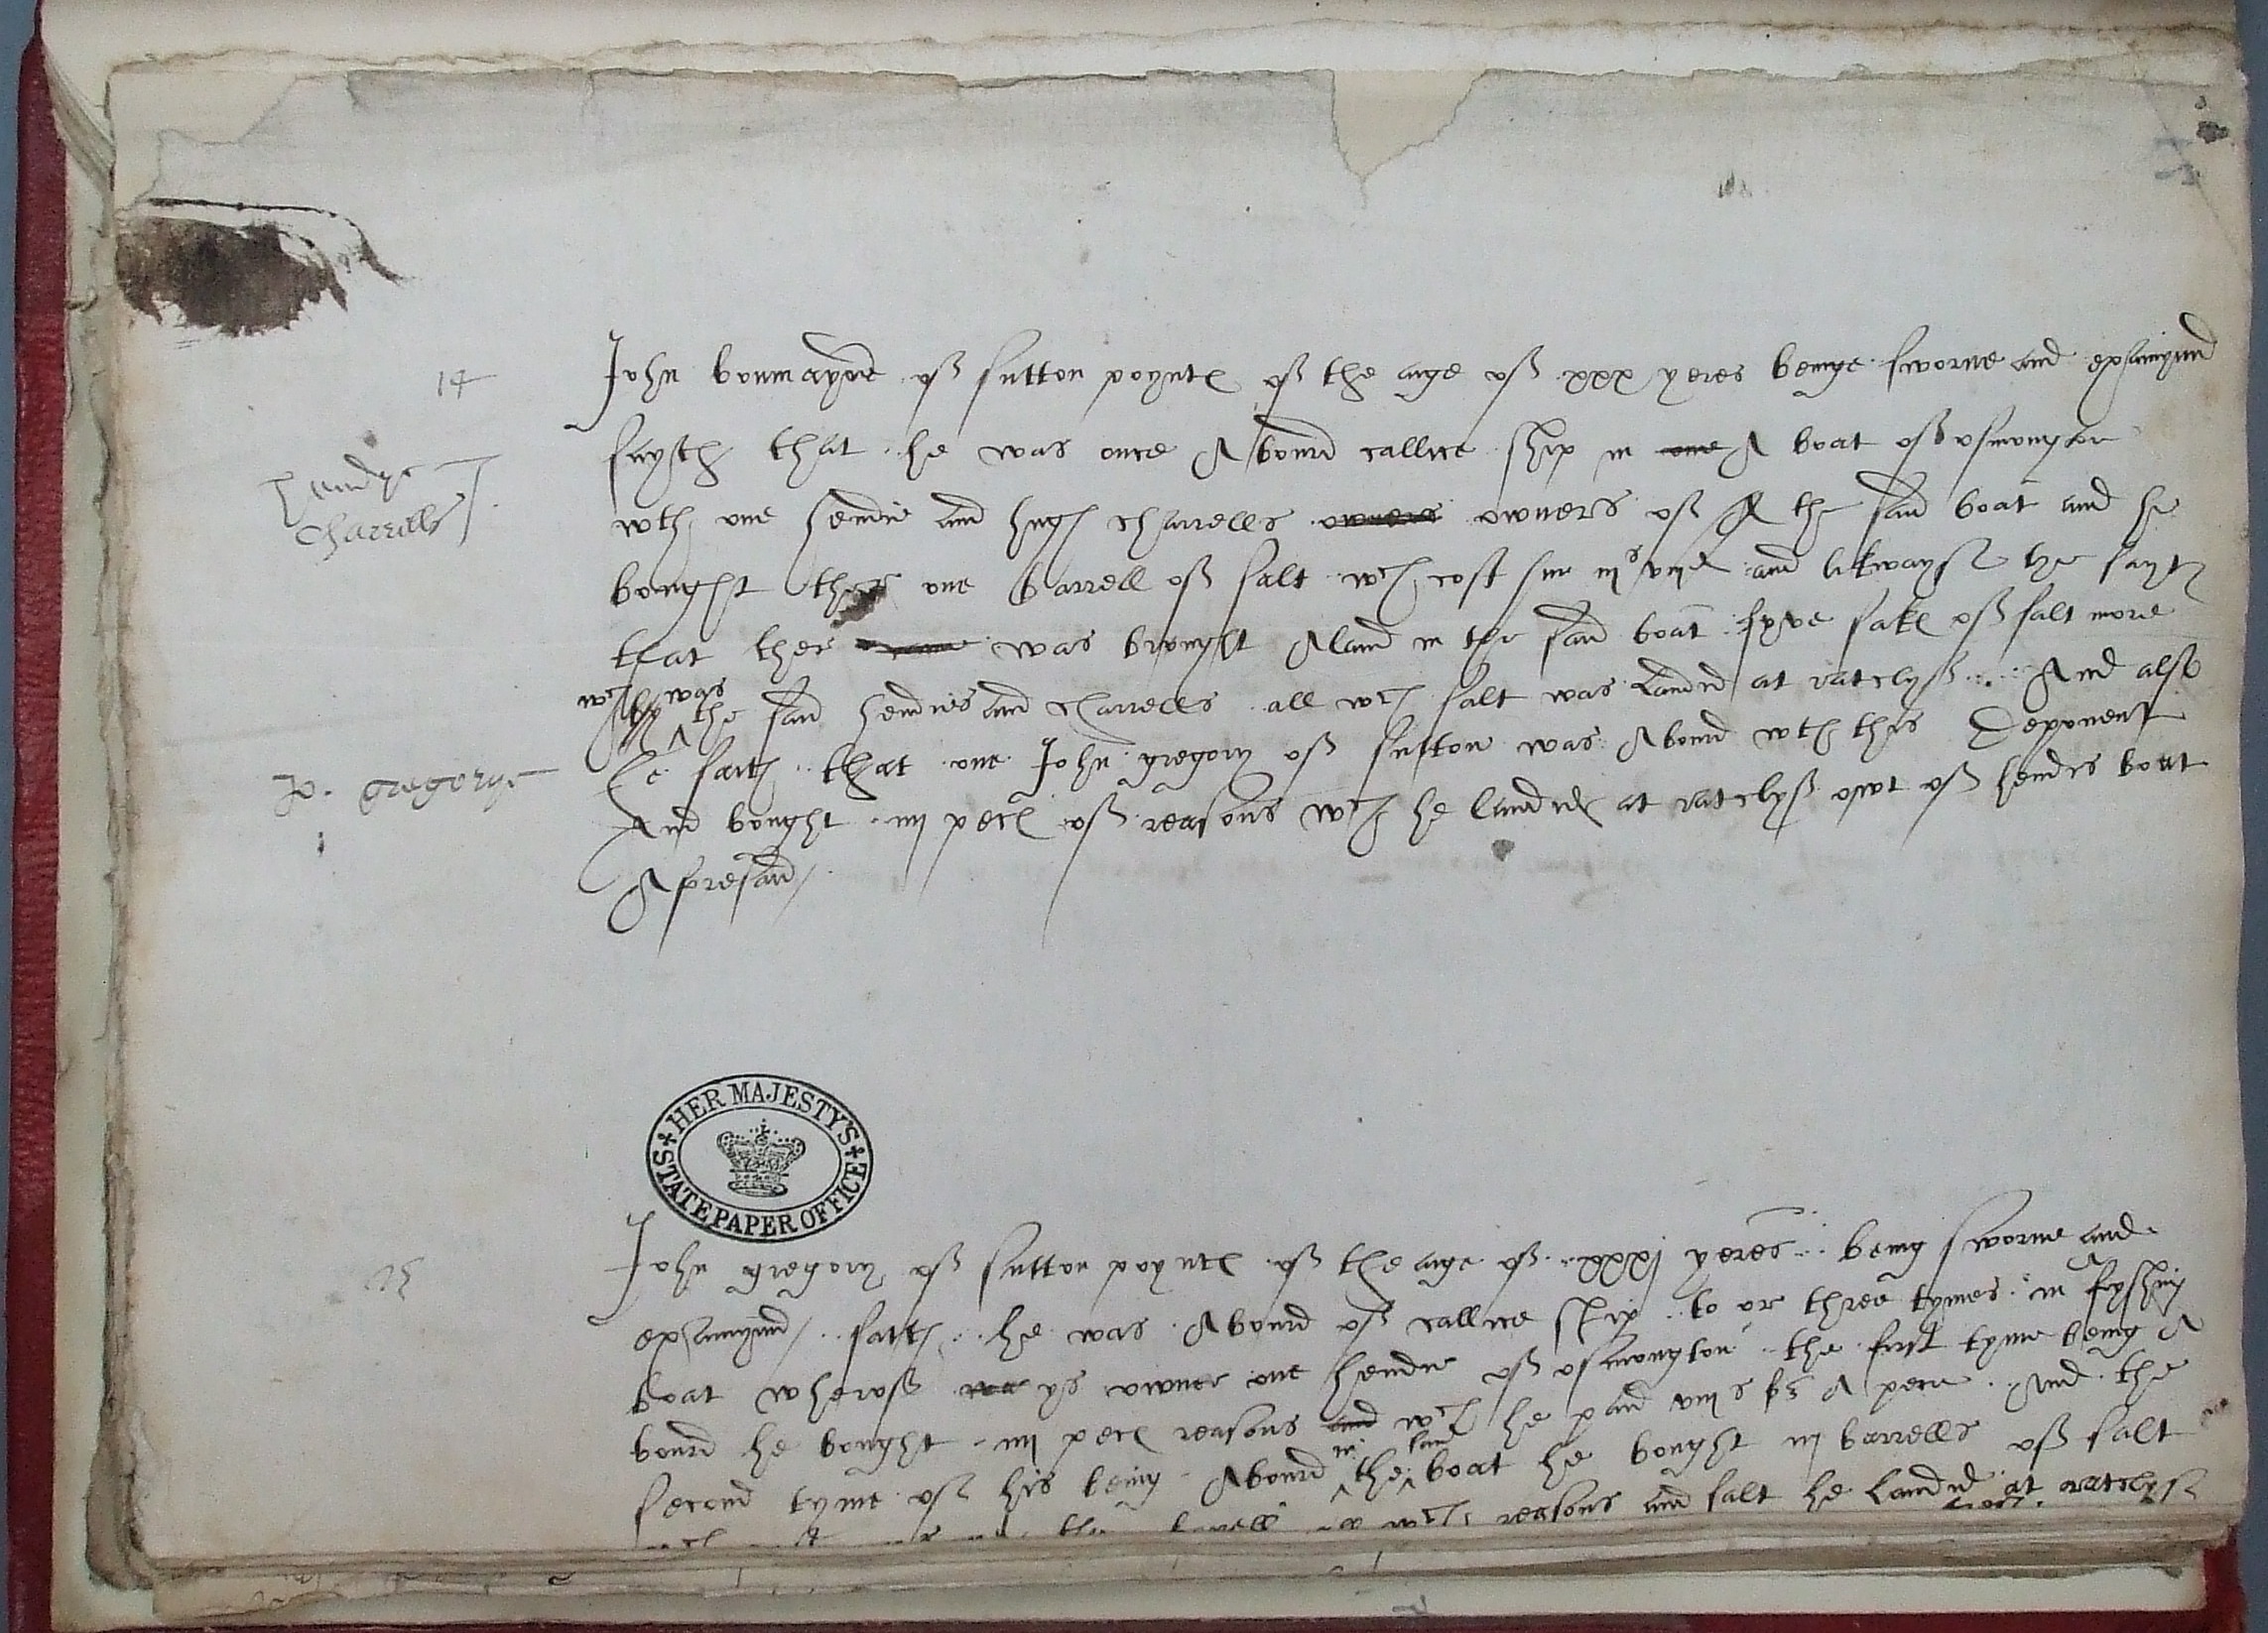 14
John bonmayne off sutton poyntz off the aige off xxx yeres beinge sworne and examynid
hendye
Charrells
sayeth that he was once A bourd callice ship in one A boat off osmongton
wth one hendie and hugh charrells owners owners off A the said boat and he
bought ther one barrell off salt wch cost him iijs viijd and likwayse he sayth
that ther came was brought A land in the said boat fyve sakes off salt more
wch was
by the said hendies and charrells all wch salt was Landid at ratclyff And also
Jo. gregorye
he saith that one John gregory off sutton was A bourd wth this Deponent
And bought iiij peces off reasons wch he landid at ratclyff owt off hendes boat
A foresaid
HER MAJESTY'S STATE PAPER OFFICE
15
John gregory off sutton poyntz off the aige off xxxj yeres being sworne and
examynid saith he was A bourd off callice ship to or three tymes in A fyshing
boat wheroff was ys owner one hendie off osmongton the first tyme being A
bourd he bought iiij peces reasons and wch he paid viijs A pece And the
in said
second tyme off his being A bourd the boat he bought iij barrells off salt
wch reasons and salt he Landid at ratclyff